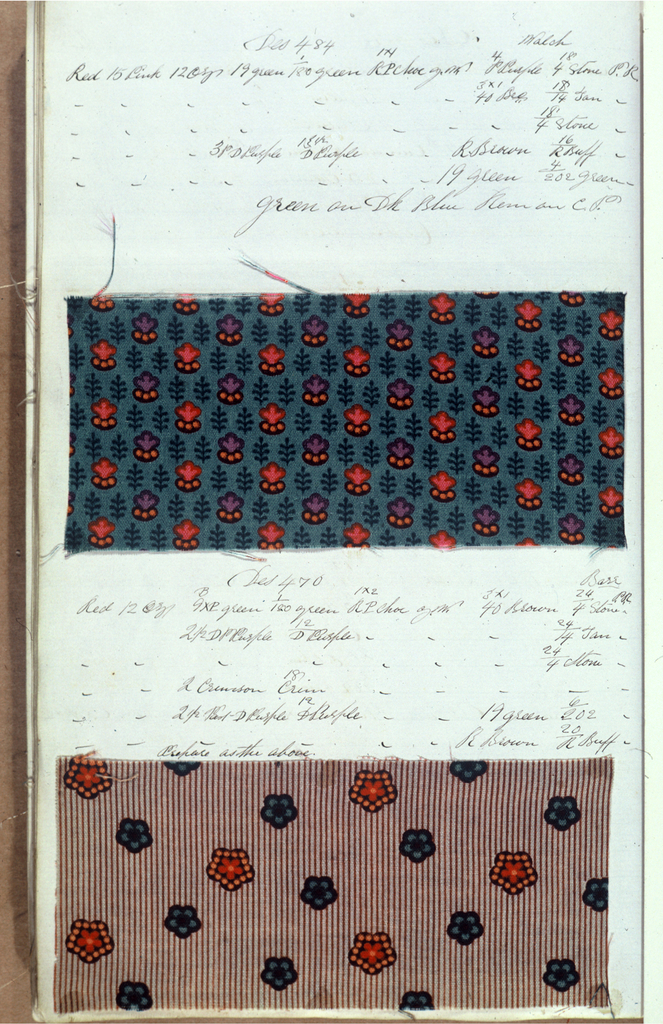 Des 484 Walsh
Red 15 Pink 12 19 green 1/120 green R P Choc 1x4 4 P Purple 18/4 Stone P. R
" " " " " " " 3x1 40 18/14 Tan "
" " " " " " " 18/4 Stone "
" " 3 P D Purple 1812 D Purple " " R Brown 16 R Buff "
" " " " " " 19 green 4/202 Green "
green on Dk Blue on C.P.
Des 470 Barr
Red 12 9 x P green 1/120 green R P Choc 1x2 3x1 40 Brown 24/4 Stone P R
2 1/2 D P Purple 12 D Purple " " " 24/14 Tan "
" " " " " " 24/4 Stone "
" " 2 Crimson 18 Crim " " "
" " 2 1/2 D Purple 12 Purple " " 19 green 6/202 "
Prepare as the above. " " R Brown 20 R Buff "